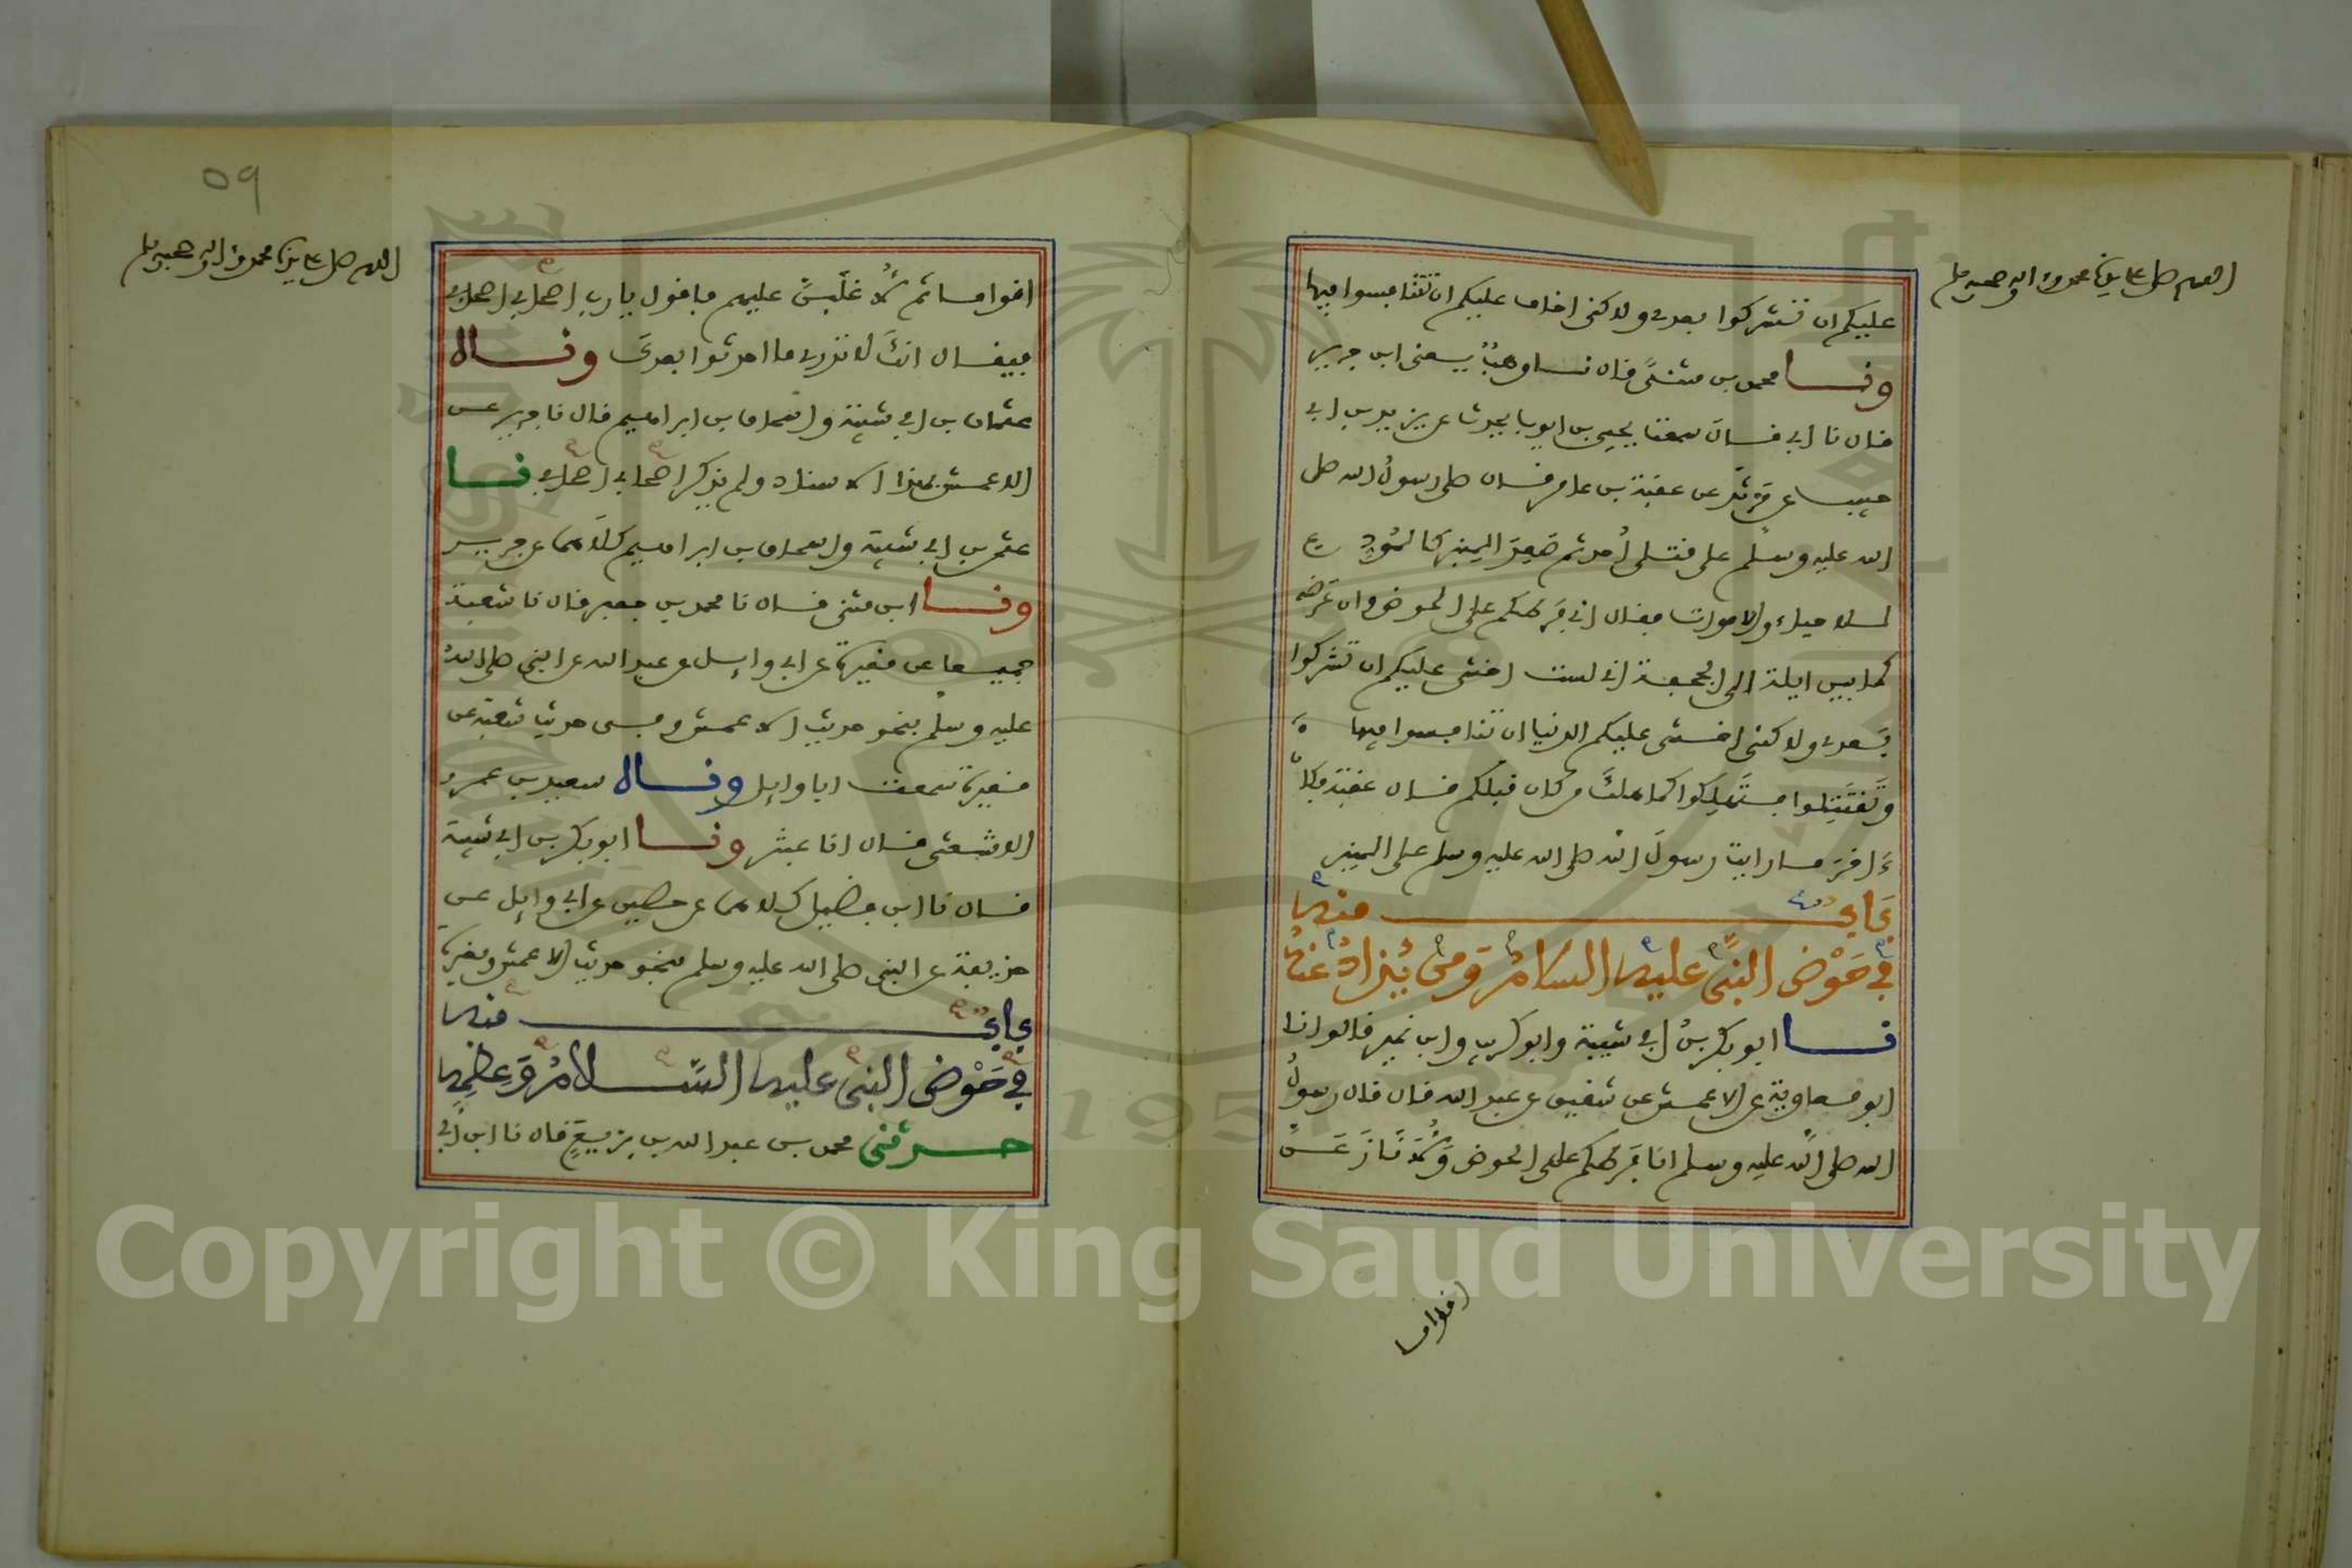 اللهم صل على سيدنا محمد وءاله وصحبه وسلم
عليكم ان تشركوا بعدى ولاكنى اخاف عليكم ان تتنافسوا فيها
ونا محمد بن مثنى قال نا وهب يعنى ابن جرير
قال نا ابى قال سمعت يحيى بن ايوب يحدث عن يزيد بن ابى
حبيب عن مرثد عن عقبة بن عامر قال صلى رسول الله صلى
الله عليه وسلم على قتلى أحد ثم صعد المنبر كالمودع
للاحياء والاموات فقال انى فرطكم على الحوض وان عرضه
كما بين ايلة الى الجحفة انى لست اخشى عليكم ان تشركوا
بعدى ولاكنى اخشى عليكم الدنيا ان تنافسوا فيها
وتقتتلوا فتهلكوا كما هلك من كان قبلكم قال عقبة فكان
ءاخر ما رايت رسول الله صلى الله عليه وسلم على المنبر
باب منه
في حوض النبى عليه السلام ومن يذاد عنه
نا ابو بكر بن ابى شيبة وابو كريب وابن نمير قالوا نا
ابو معاوية عن الاعمش عن شقيق عن عبد الله قال قال رسول
الله صلى الله عليه وسلم انا فرطكم على الحوض ولأنازعن
اقواما
09
اللهم صل على سيدنا محمد وءاله وصحبه وسلم
اقواما ثم لأغلبن عليهم فاقول يا رب اصحابى اصحابى
فيقال انك لا تدرى ما احدثوا بعدك وقال
عثمان بن ابى شيبة واسحاق بن ابراهيم قال نا جرير عن
الاعمش بهذا الاسناد ولم يذكر اصحابى اصحابى نا
عثمن بن ابى شيبة واسحاق بن ابراهيم كلاهما عن جرير
ونا ابن مثنى قال نا محمد بن جعفر قال نا شعبة
جميعا عن مغيرة عن ابى وايل عن عبد الله عن النبى صلى الله
عليه وسلم بنحو حديث الاعمش وفى حديث شعبة عن
مغيرة سمعت ابا وايل وقال سعيد بن عمرو
الاشعثى قال انا عبثر ونا ابو بكر بن ابى شيبة
قال نا ابن فضيل كلاهما عن حصين عن ابى وايل عن
حذيفة عن النبى صلى الله عليه وسلم بنحو حديث الاعمش ومغيرة
باب منه
في حوض النبى عليه السلام وعظمه
حدثنى محمد بن عبد الله بن بزيع قال نا ابن ابى
Copyright © King Saud University
1957